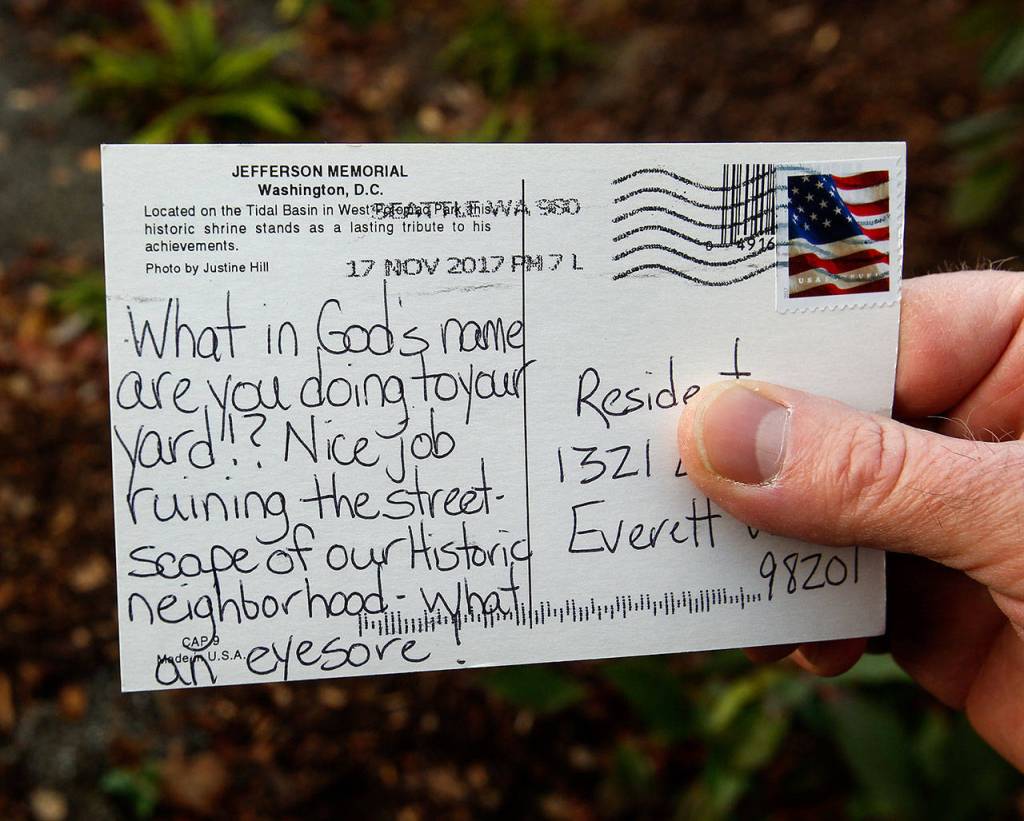 JEFFERSON MEMORIAL
Washington, D.C.
Located on the Tidal Basin in West Potomac Park, this
historic shrine stands as a lasting tribute to his
achievements.
Photo by Justine Hill
SEATTLE WA 980
17 NOV 2017 PM 7 L
4916
USA
What in God's name
are you doing to your
yard!!? Nice job
ruining the street-
scape of our Historic
neighborhood - what
an eyesore!
CAP 9
Made in U.S.A.
1321
Everett
98201